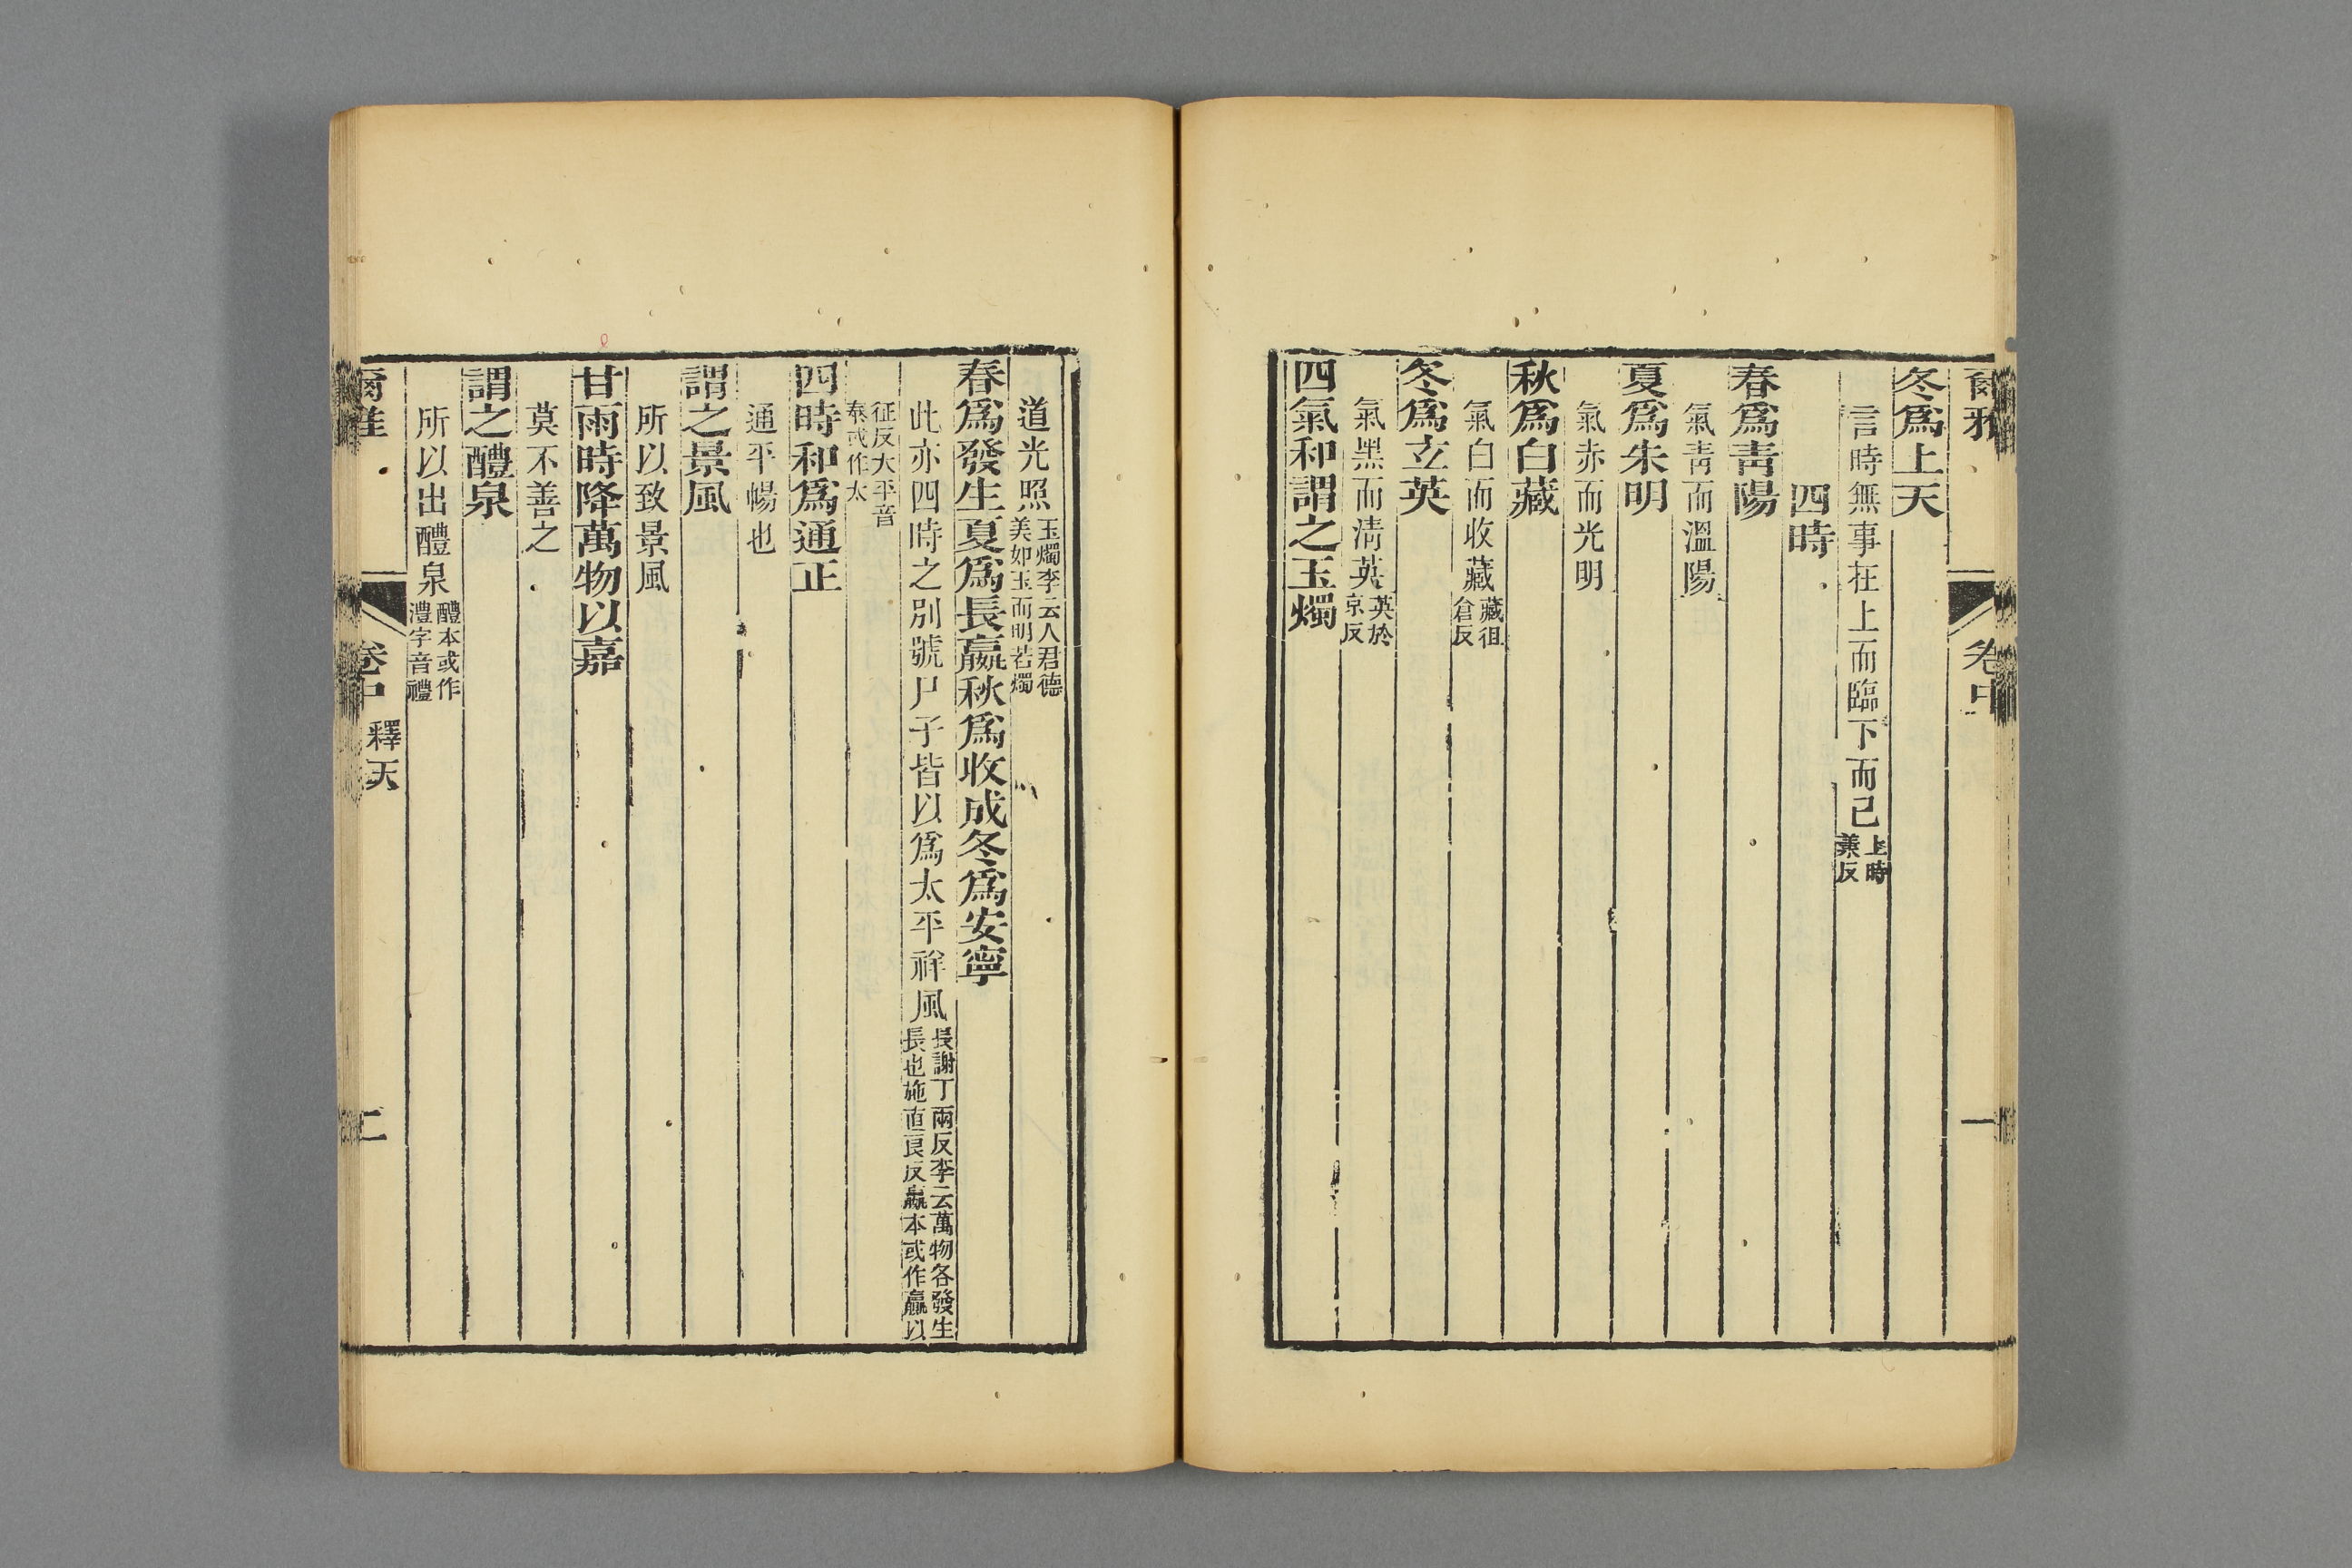 爾雅 卷中 一
冬爲上天
言時無事在上而臨下而已上時掌反
四時
春爲靑陽
氣靑而溫陽
夏爲朱明
氣赤而光明
秋爲白藏
氣白而收藏藏徂倉反
冬爲玄英
氣黑而淸英英於京反
四氣和謂之玉燭
道光照玉燭李云人君德美如玉而明若燭
春爲發生夏爲長嬴秋爲收成冬爲安寧
此亦四時之別號尸子皆以爲太平祥風長謝丁兩反李云萬物各發生長也施直良反嬴本或作贏以
征反大平音泰或作太
四時和爲通正
通平暢也
謂之景風
所以致景風
甘雨時降萬物以嘉
莫不善之
謂之醴泉
所以出醴泉醴本或作澧字音禮
爾雅 卷中 釋天 二